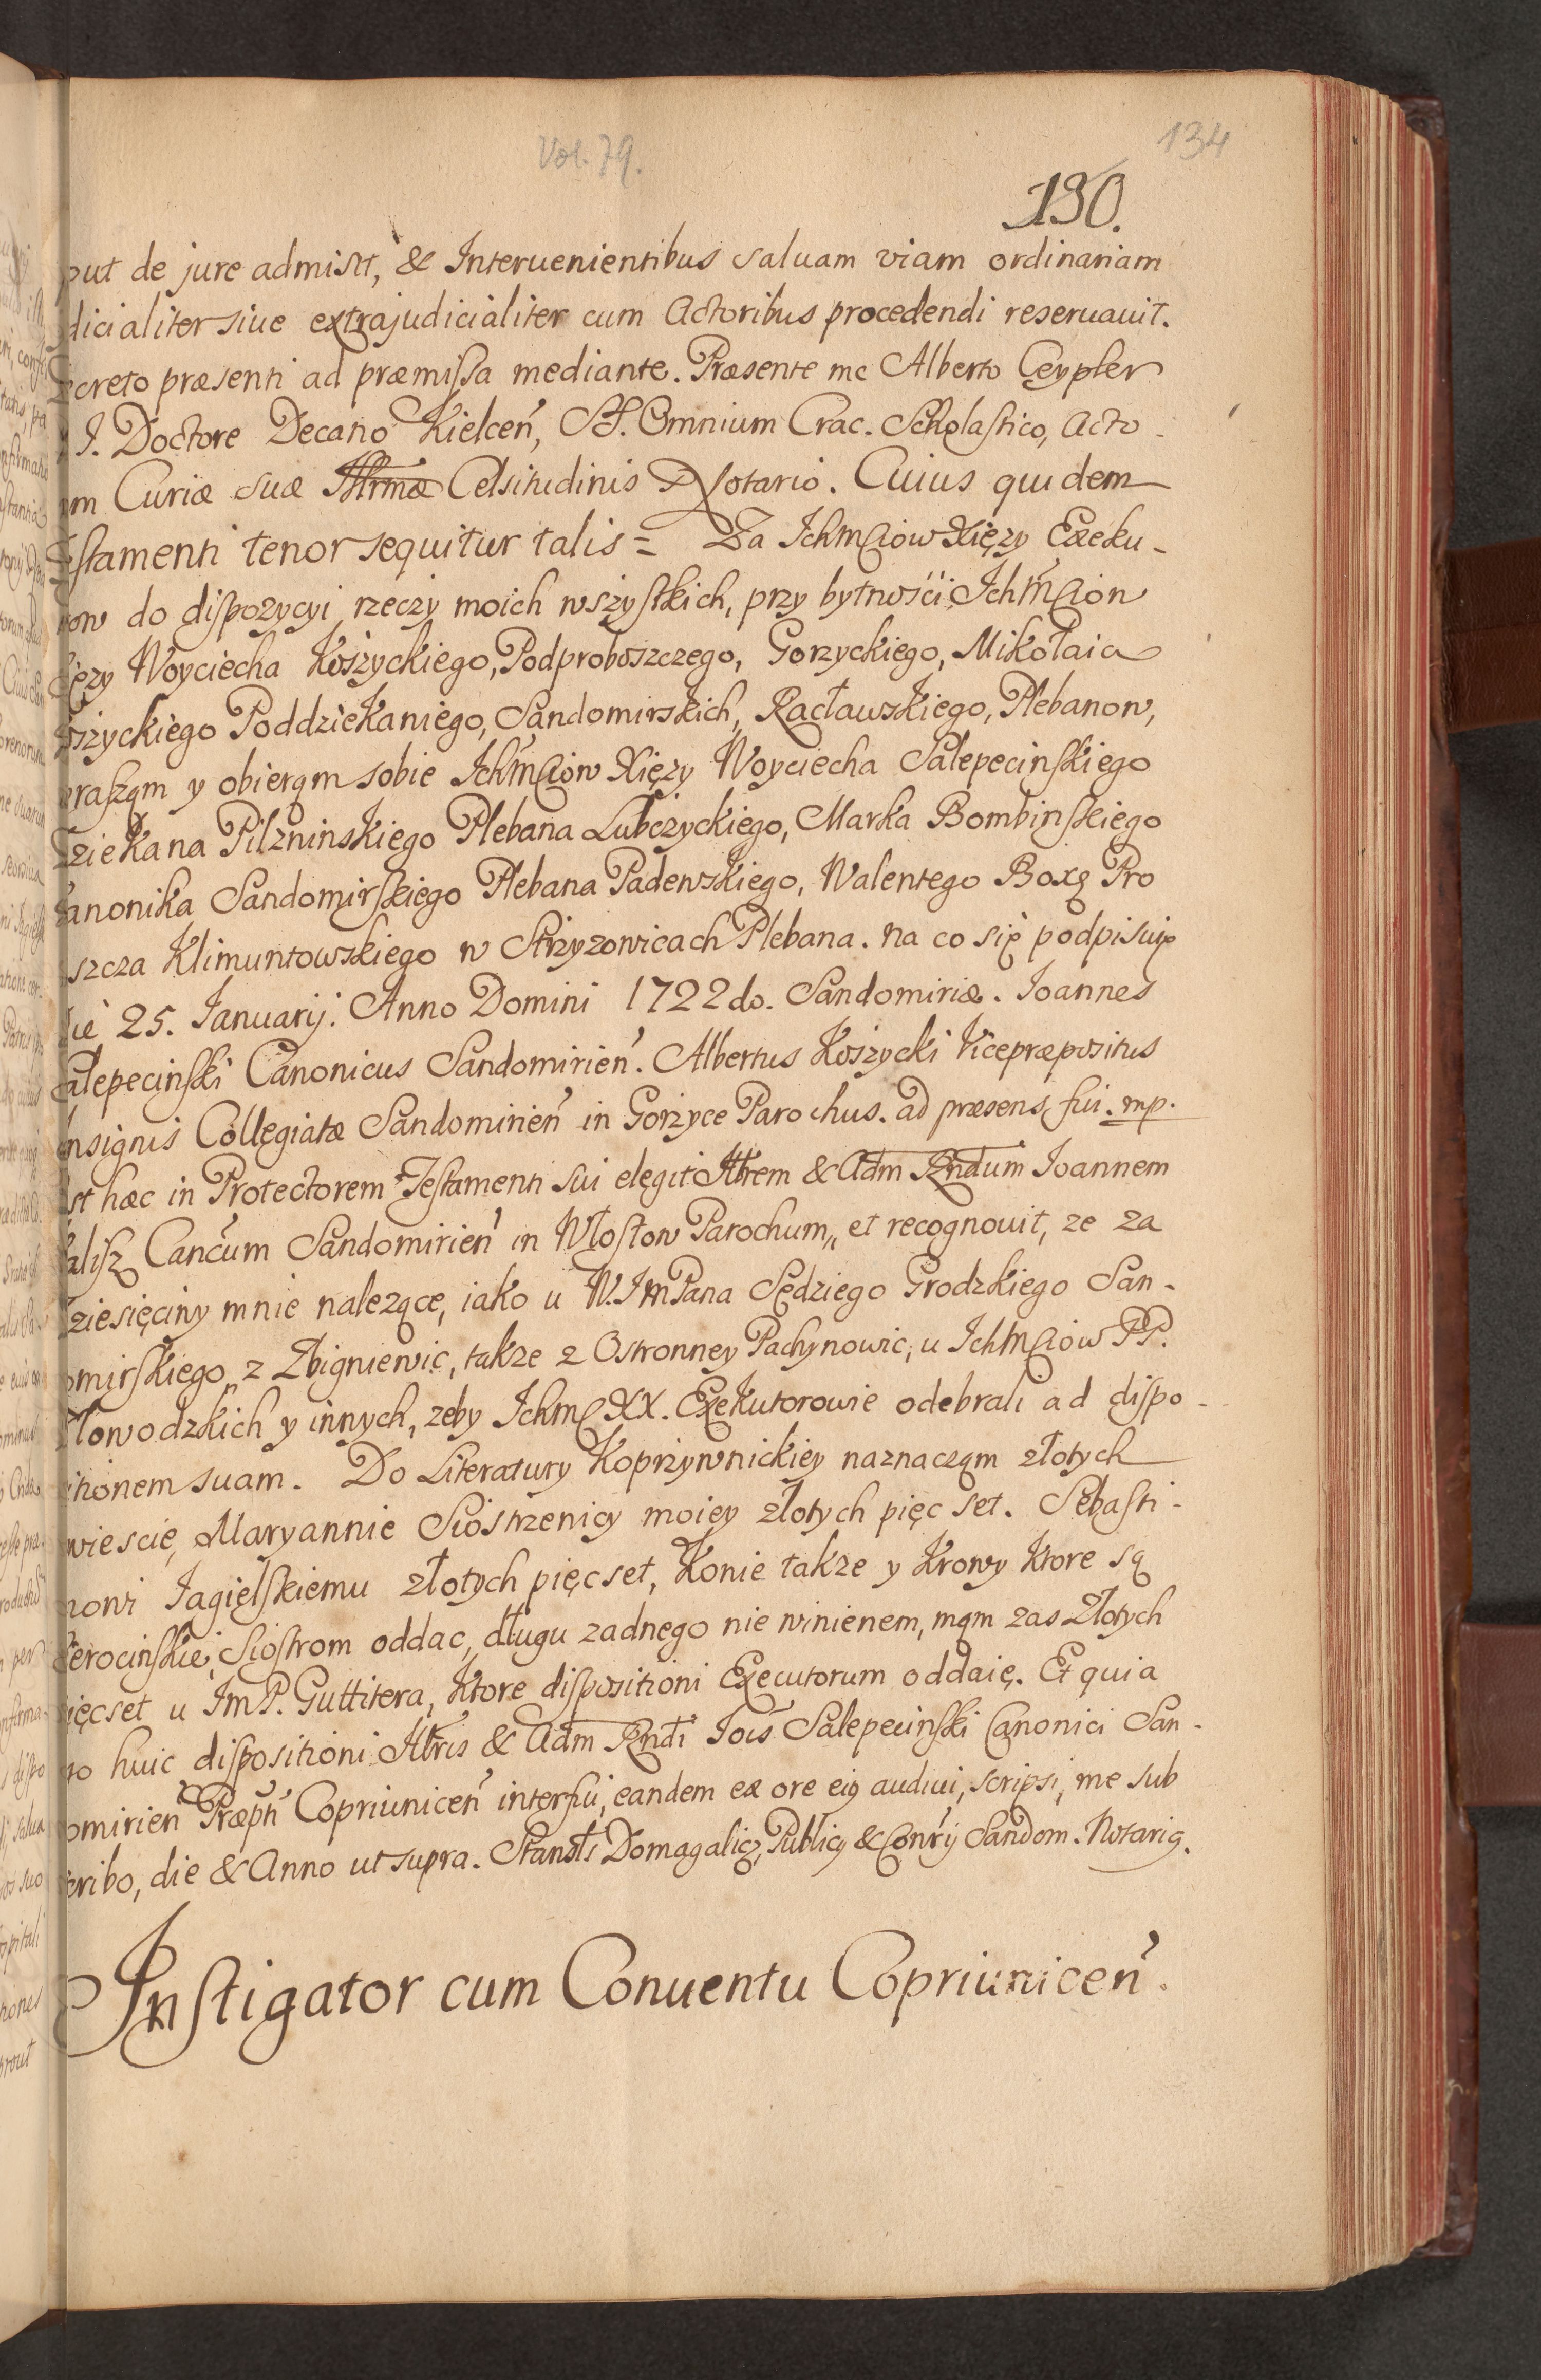 Vol. 79.
134
130.
out de jure admisit, & Interuenientibus saluam viam ordinariam
dicialiter siue extrajudicialiter cum Actoribus procedendi reseruauit.
ecreto præsenti ad præmissa mediante. Præsente me Alberto Ceypler
J. Doctore Decano Kielceń, SS. Omnium Crac. Scholastico, Acto-
um Curiæ suæ Illrmæ Celsitudinis Notario. Cuius quidem
estamenti tenor sequitur talis = Za IchMciow Xięzy Exeku-
row do dispozycyi rzeczy moich wszystkich, przy bytności IchMciow
ięzy Woyciecha Koszyckiego, Podproboszczego, Gorzyckiego, Mikołaia
oszyckiego Poddziekaniego, Sandomirskich, Racławskiego, Plebanow,
praszam y obieram sobie IchMciow Xięzy Woyciecha Salepecinskiego
ziekana Pilzninskiego Plebana Lubczyckiego, Marka Bombinskiego
anonika Sandomirskiego Plebana Padewskiego, Walentego Boxę Pro
szcza Klimuntowskiego w Strzyzowicach Plebana. na co się podpisuię
die 25. Ianuarij. Anno Domini 1722do. Sandomiriæ. Ioannes
alepecinski Canonicus Sandomirień. Albertus Koszycki Vicepræpositus
nsignis Collegiatæ Sandomirień in Gorzyce Parochus. ad præsens fui. mp.
st hæc in Protectorem Testamenti sui elegit Illrem & Adm Rndum Ioannem
alisz Cancum Sandomirień in Włostow Parochum,, et recognouit, ze za
ziesięciny mnie nalezące, iako u W. ImPana Sędziego Grodzkiego San-
omirskiego,, z Zbigniewic, takze z Ostronney Pachynowic, u IchMciow PP.
łowodzkich y innych, zeby Ichmc XX. Exekutorowie odebrali ad dispo-
itionem suam. Do Literatury Koprzywnickiey naznaczam złotych
wiescie, Maryannie Siostrzenicy moiey złotych pięc set. Sebasti-
nowi Iagielskiemu złotych pięcset, Konie takze y Krowy Ktore są
erocinskie, Siostrom oddac, długu zadnego nie winienem, mam zas Złotych
ięcset u ImP. Guttitera, Ktore dispositioni Executorum oddaię. Et quia
go huic dispositioni Illris & Adm Rndi Iois Salepecinski Canonici San-
omirień Præpti Copriuniceń interfui, eandem ex ore eig audiui, scripsi, me sub
cribo, die & Anno ut supra. Stansłs Domagalicz, Publicg & Consrij Sandom. Notarig.
Instigator cum Conuentu Copriuniceń.